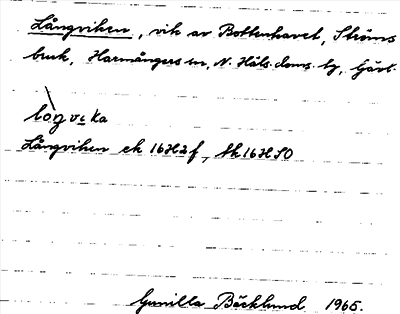 Långviken, vik av Bottenhavet, Ströms
bruk, Harmångers sn, N. Häls. doms. bg, Gävl.
lòŋvi̠ka
Långviken ek 16H2f, tk 16H SO
Gunilla Bäcklund 1965.